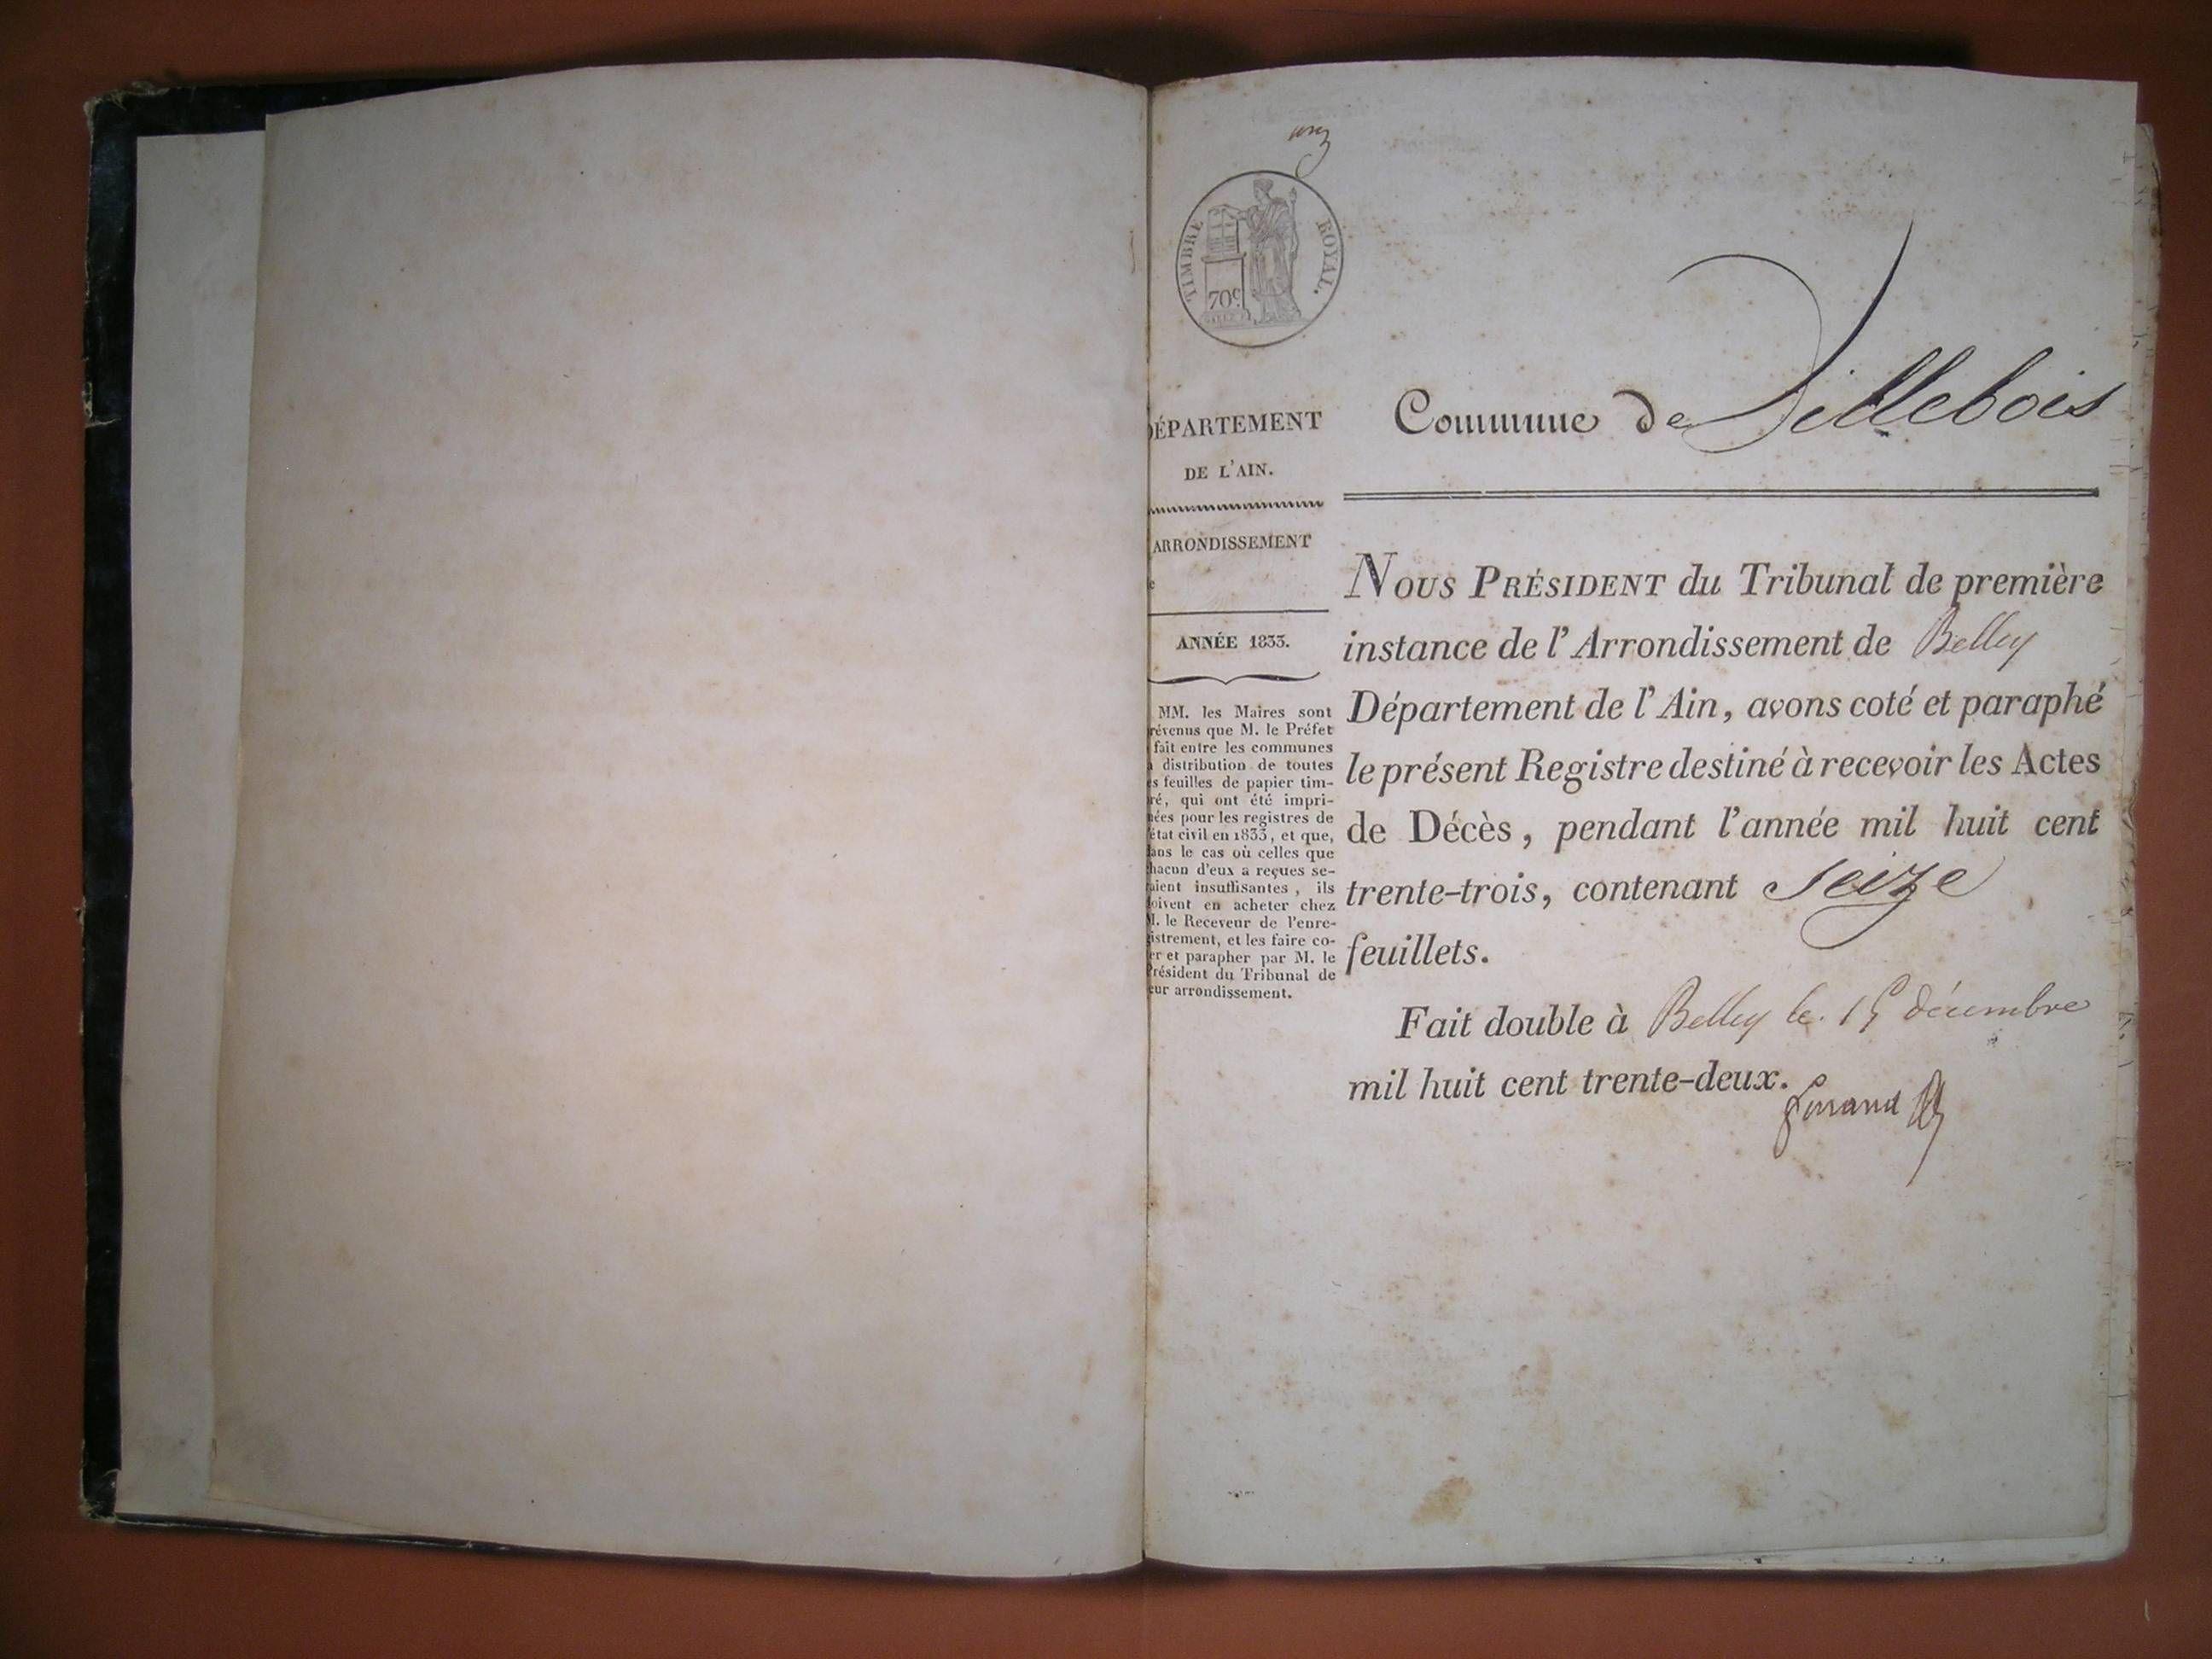 TIMBRE ROYAL.
70c
DÉPARTEMENT
DE L'AIN.
ARRONDISSEMENT
e
ANNÉE 1833.
MM. les Maires sont
révenus que M. le Préfet
fait entre les communes
a distribution de toutes
es feuilles de papier tim-
ré, qui ont été impri-
ées pour les registres de
état civil en 1833, et que,
ans le cas où celles que
hacun d'eux a reçues se-
aient insuffisantes, ils
oivent en acheter chez
M. le Receveur de l'enre-
istrement, et les faire co-
er et parapher par M. le
Président du Tribunal de
eur arrondissement.
Commune de Villebois
NOUS PRÉSIDENT du Tribunal de première
instance de l'Arrondissement de Belley
Département de l'Ain, avons coté et paraphé
le présent Registre destiné à recevoir les Actes
de Décès, pendant l'année mil huit cent
trente-trois, contenant Seize
feuillets.
Fait double à Belley le 15 décembre
mil huit cent trente-deux.